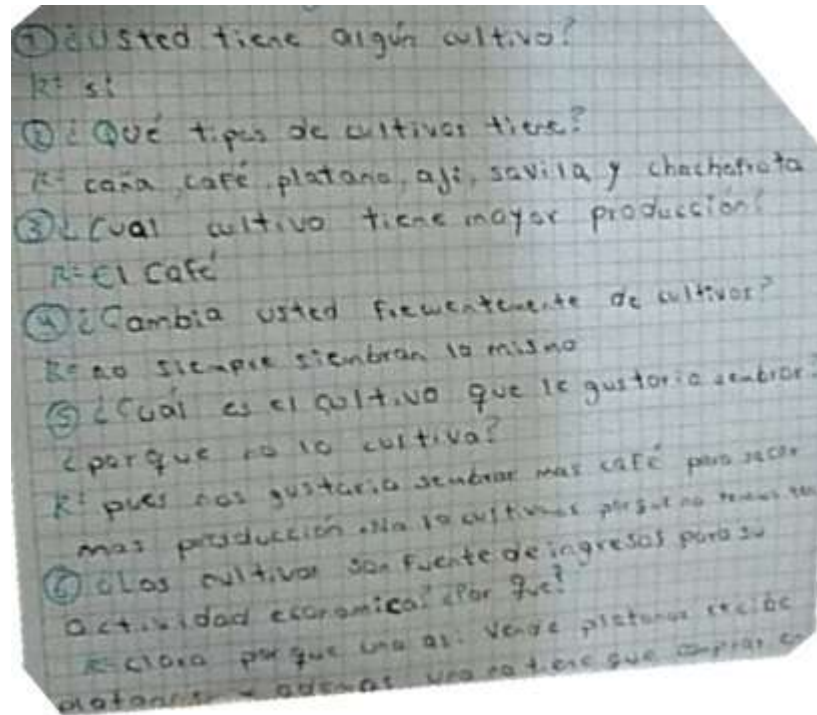 ① ¿Usted tiene algún cultivo?
R= si
② ¿Qué tipos de cultivos tiene?
R= caña, café, platano, aji, savila y chachafruta
③ ¿Cual cultivo tiene mayor producción?
R= El Café
④ ¿Cambia usted frecuentemente de cultivos?
R= no siempre siembran lo mismo
⑤ ¿Cuál es el cultivo que le gustaria sembrar?
¿por que no lo cultiva?
R= pues nos gustaria sembrar mas café para sacar
mas producción. No lo cultivamos porque no tenemos
⑥ ¿Los cultivos son fuente de ingresos para su
actividad economica? ¿Por que?
R= claro por que uno asi vende platanos recibe
y ademas uno no tiene que comprar